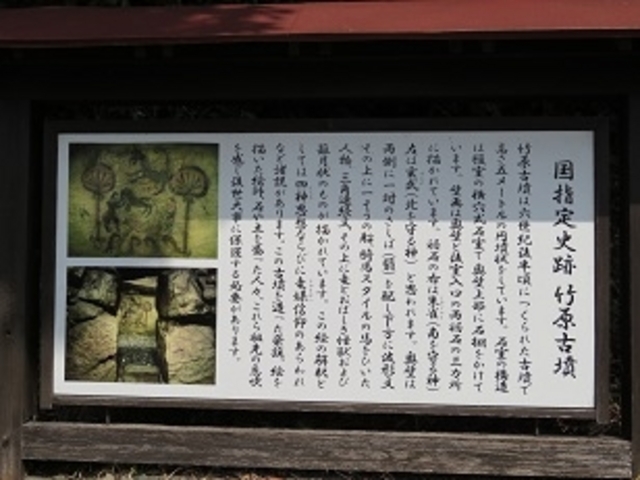 国指定史跡 竹原古墳
竹原古墳は六世紀後半頃につくられた古墳で
高さ五メートルの円墳状をしています。石室の構造
は複室の横穴式石室で奥壁上部に石棚をかけて
います。壁画は奥壁と後室入口の両袖石の三カ所
に描かれています。袖石の右は朱雀(南を守る神)
左は玄武(北を守る神)と思われます。奥壁は
両側に一対のさしば(翳)を配し下方に波形文
その上に一そうの船、騎馬スタイルの馬をひいた
人物、三角連続文、その上に竜とおぼしき怪獣および
龍月状のものが描かれています。この絵の解釈と
しては四神思想ならびに竜媒信仰のあらわれ
など諸説があります。この古墳を造った豪族、絵を
描いた絵師、石や土を盛った人々、これら祖先の息吹
を感じ後世に大事に保護する必要があります。